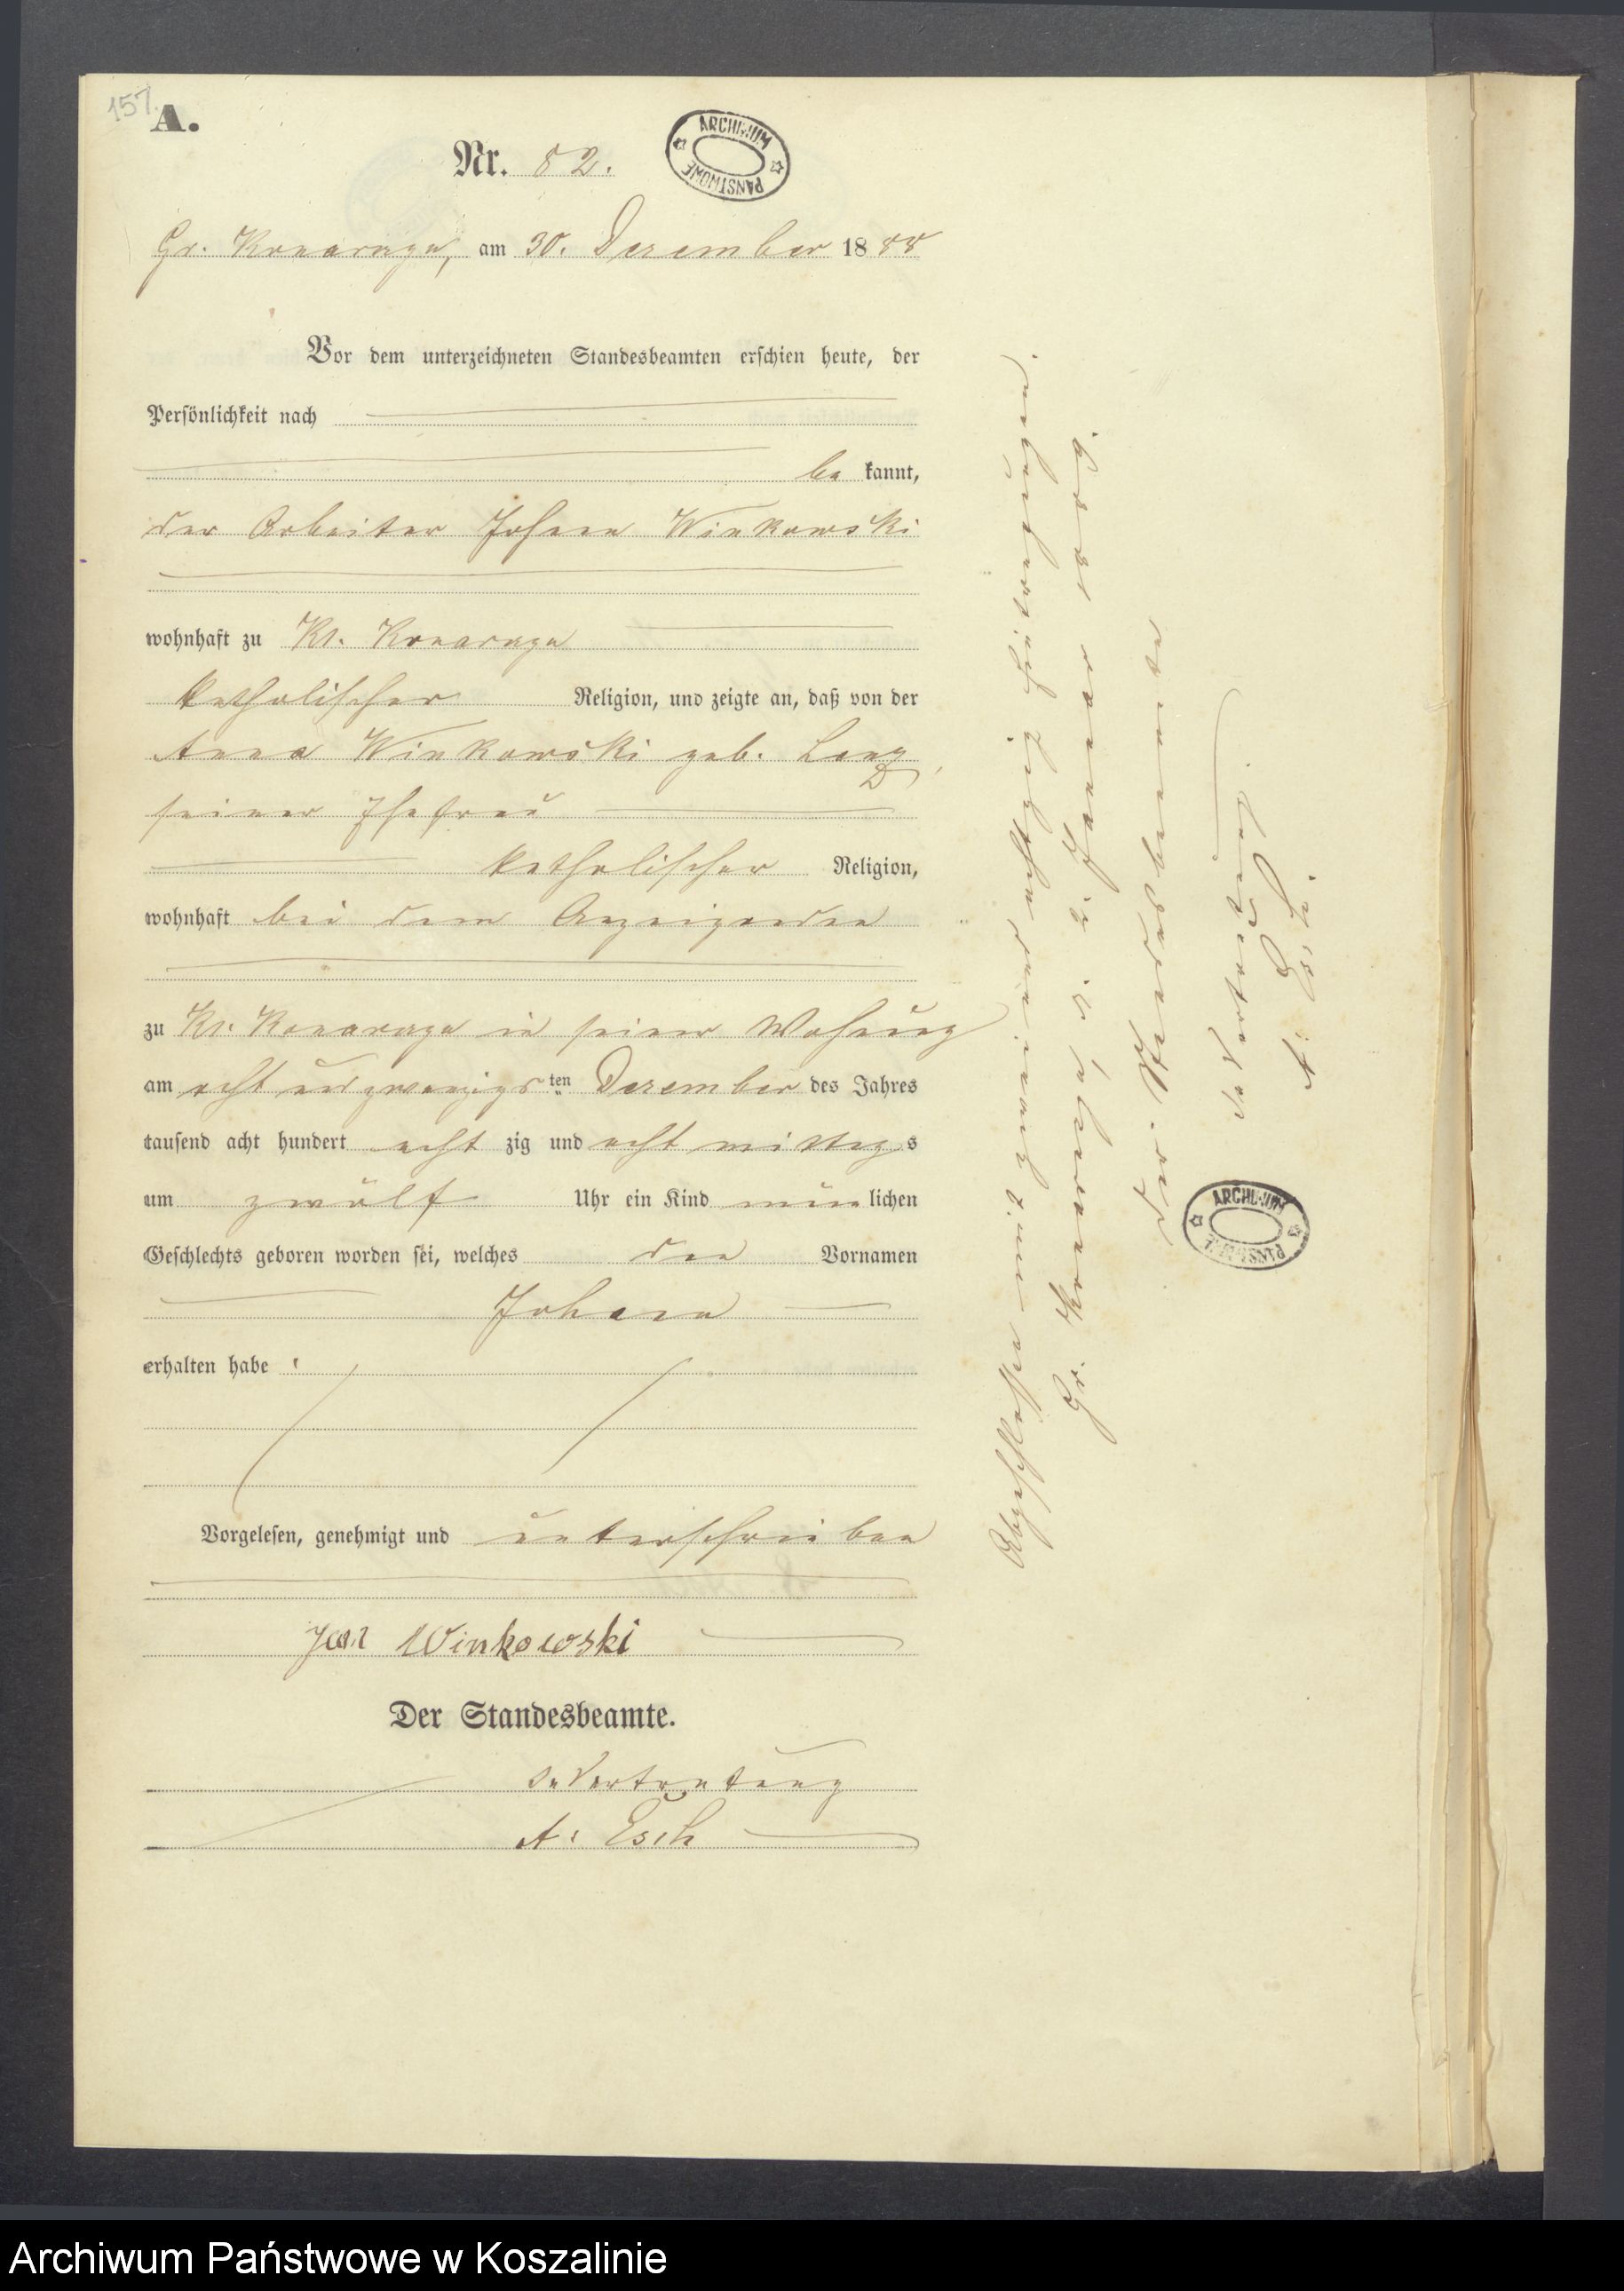 157.
A.
Nr. 82.
ARCHIWUM PAŃSTWOWE
Gr. Konarczyn, am 30. Dezember 1888
Vor dem unterzeichneten Standesbeamten erschien heute, der
Persönlichkeit nach
be kannt,
der Arbeiter Johann Winkowski
wohnhaft zu Kl. Konarczyn
katholischer Religion, und zeigte an, daß von der
Anna Winkowski geb.
seiner Ehefrau
katholischer Religion,
wohnhaft bei dem Anzeigenden
zu Kl. Konarczyn in seiner Wohnung
am acht und zwanzigsten Dezember des Jahres
tausend acht hundert acht zig und acht mittags
um zwölf Uhr ein Kind männlichen
Geschlechts geboren worden sei, welches den Vornamen
Johann
erhalten habe.
Vorgelesen, genehmigt und unterschrieben
Jan Winkowski
Der Standesbeamte.
In Vertretung
A. Esch
Abgeschlossen mit zweiundachtzig Eintragungen.
Gr. Konarczyn, d. 2. Januar 1889.
Der Standesbeamte
In Vertretung
A. Esch
ARCHIWUM PAŃSTWOWE
Archiwum Państwowe w Koszalinie